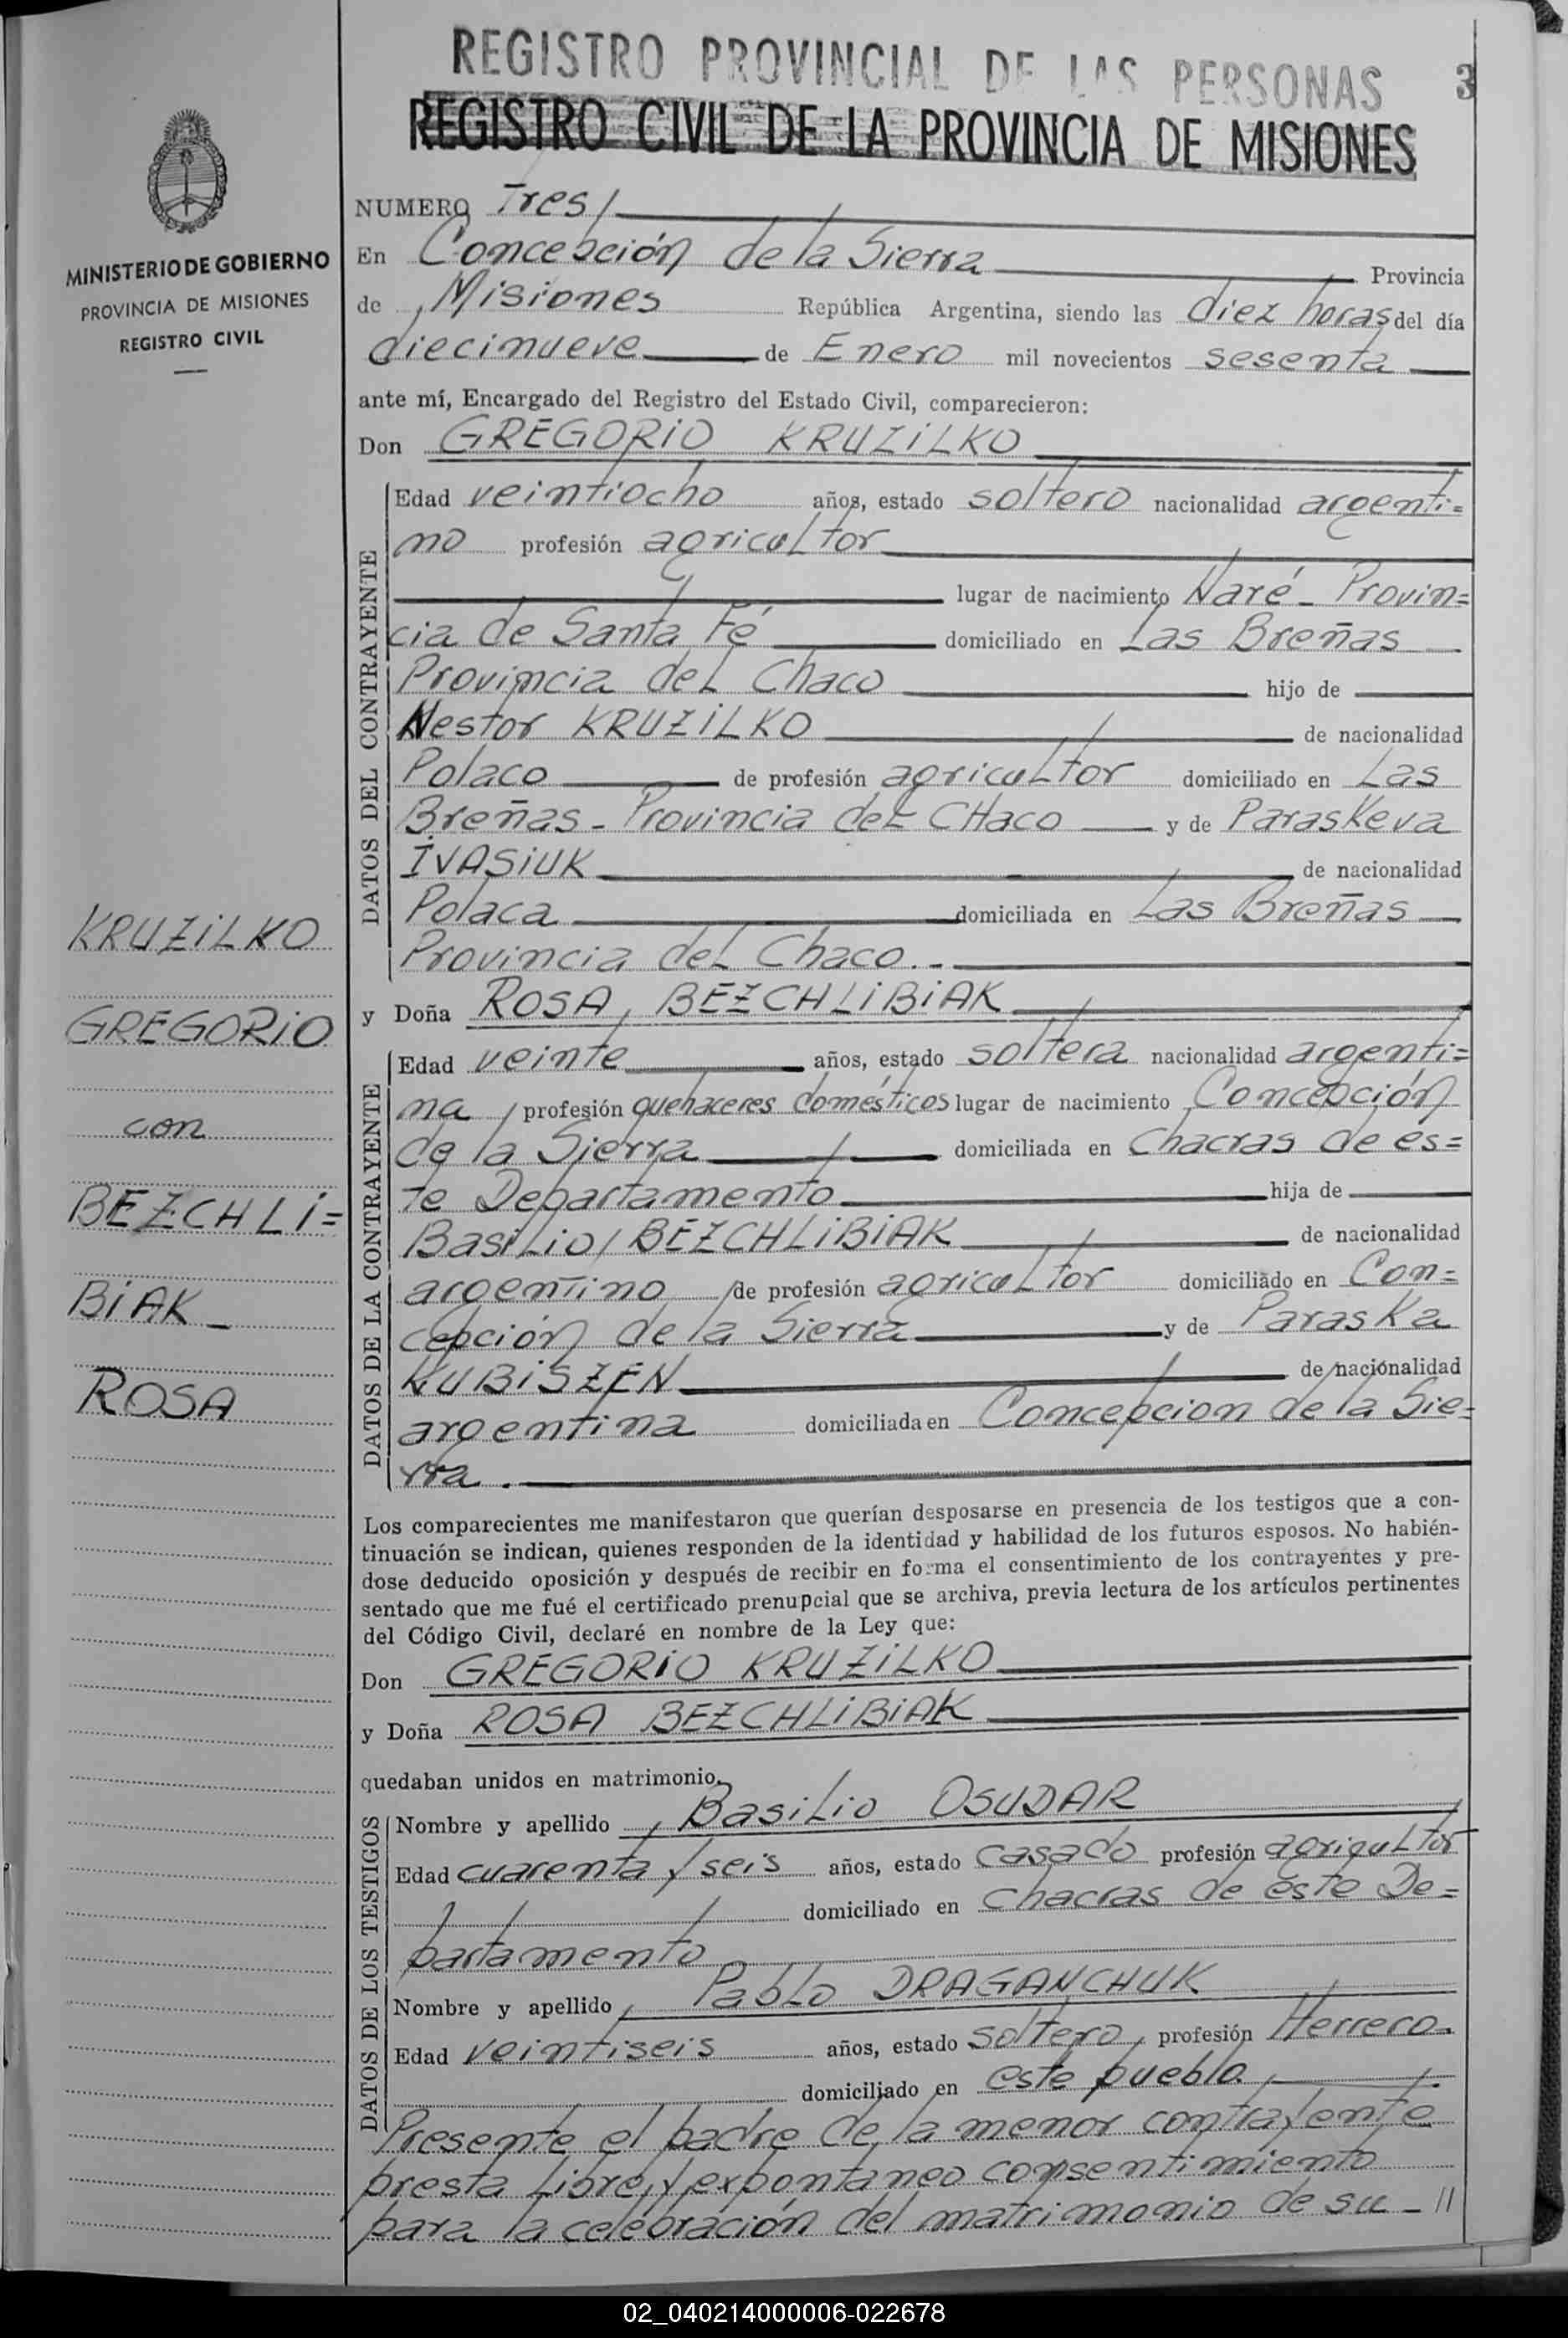 REGISTRO PROVINCIAL DE LAS PERSONAS
3
REGISTRO CIVIL DE LA PROVINCIA DE MISIONES
MINISTERIO DE GOBIERNO
PROVINCIA DE MISIONES
REGISTRO CIVIL
KRUZILKO
GREGORIO
con
BEZCHLI=
BIAK
ROSA
NUMERO Tres
En Concepción de la Sierra Provincia
de Misiones República Argentina, siendo las diez horas del día
diecinueve de Enero mil novecientos sesenta
ante mí, Encargado del Registro del Estado Civil, comparecieron:
Don GREGORIO KRUZILKO
DATOS DEL CONTRAYENTE
Edad veintiocho años, estado soltero nacionalidad argenti=
no profesión agricultor
lugar de nacimiento Naré - Provin=
cia de Santa Fé domiciliado en Las Breñas
Provincia del Chaco hijo de
Nestor KRUZILKO de nacionalidad
Polaco de profesión agricultor domiciliado en Las
Breñas - Provincia del CHaco y de Paraskeva
IVASIUK de nacionalidad
Polaca domiciliada en Las Breñas
Provincia del Chaco.-
y Doña ROSA BEZCHLIBIAK
DATOS DE LA CONTRAYENTE
Edad veinte años, estado soltera nacionalidad argenti=
na profesión quehaceres domésticos lugar de nacimiento Concepción
de la Sierra domiciliada en Chacras de es=
te Departamento hija de
Basilio BEZCHLIBIAK de nacionalidad
argentino de profesión agricultor domiciliado en Con=
cepción de la Sierra y de Paraska
KUBISZEN de nacionalidad
argentina domiciliada en Concepcion de la Sie=
rra.
Los comparecientes me manifestaron que querían desposarse en presencia de los testigos que a con-
tinuación se indican, quienes responden de la identidad y habilidad de los futuros esposos. No habién-
dose deducido oposición y después de recibir en forma el consentimiento de los contrayentes y pre-
sentado que me fué el certificado prenupcial que se archiva, previa lectura de los artículos pertinentes
del Código Civil, declaré en nombre de la Ley que:
Don GREGORIO KRUZILKO
y Doña ROSA BEZCHLIBIAK
quedaban unidos en matrimonio.
DATOS DE LOS TESTIGOS
Nombre y apellido Basilio OSUDAR
Edad cuarenta y seis años, estado casado profesión agricultor
domiciliado en chacras de este De=
partamento
Nombre y apellido Pablo DRAGANCHUK
Edad veintiseis años, estado soltero profesión Herrero
domiciliado en este pueblo
Presente el padre de la menor contrayente
presta libre y expontaneo consentimiento
para la celebración del matrimonio de su - //
02_040214000006-022678